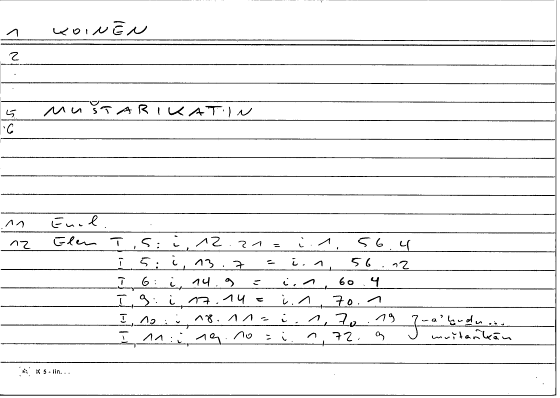 1 KOINĒN
2
5 MUŠTARIKATIN
6
11 Eucl.
12 Elem I, 5: i, 12.21 = i.1, 56.4
I 5: i, 13.7 = i.1, 56.12
I, 6: i, 14.9 = i.1, 60.4
I, 9: i, 17.14 = i.1, 70.1
I, 10: i, 18.11 = i.1, 70.19
I, 11: i, 19.10 = i.1, 72.9